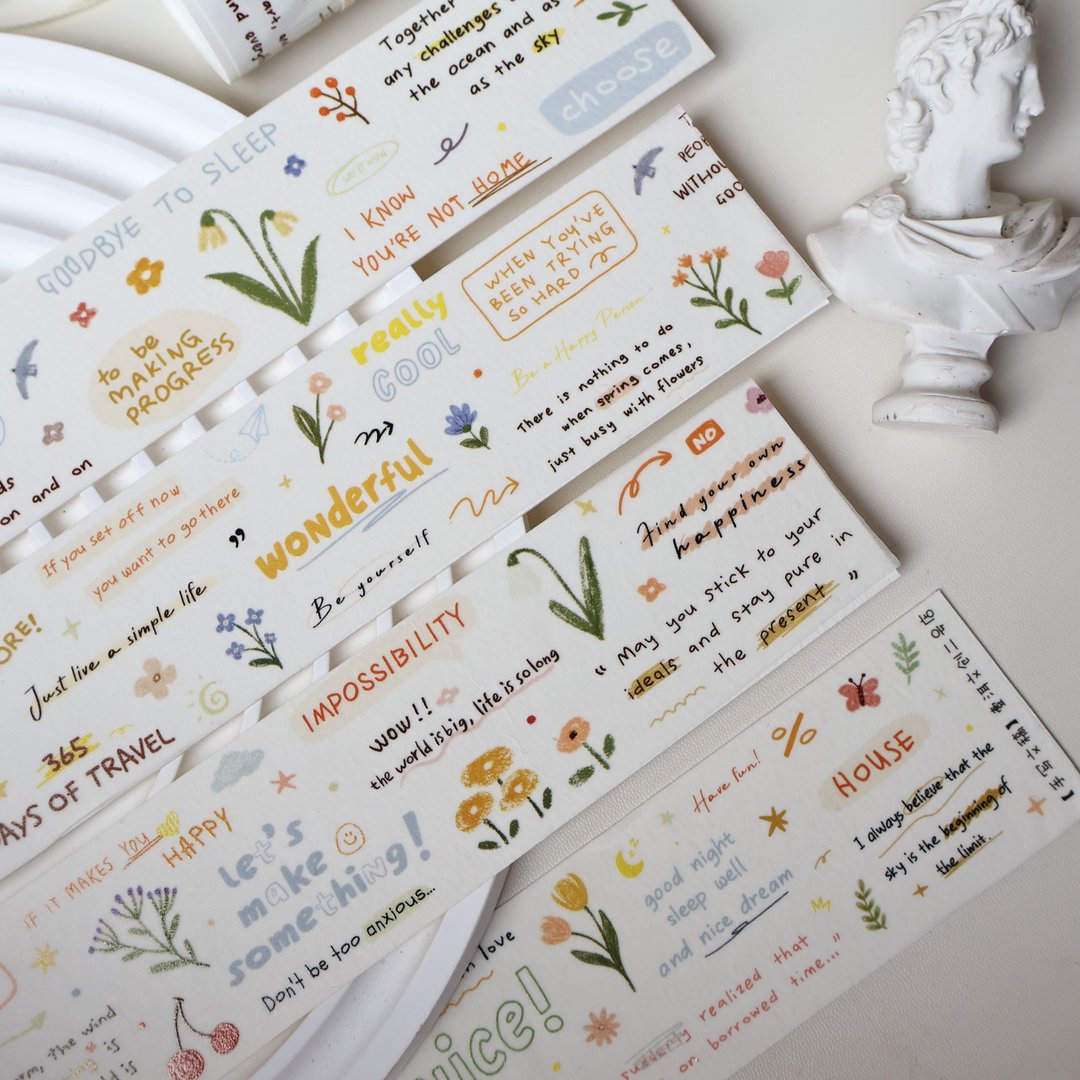 art,
Together
any challenges
the ocean and as
as the sky
choose
GOODBYE TO SLEEP
DO IT NOW
I KNOW
YOU'RE NOT HOME
to be
MAKING
PROGRESS
on and on
PEOP
WITHOU
GOO
WHEN YOU'VE
BEEN TRYING
SO HARD
really
COOL
Be a Happy Person
There is nothing to do
when spring comes,
just busy with flowers
If you set off now
you want to go there
"
wonderful
Be yourself
Just live a simple life
ORE!
365
AYS OF TRAVEL
NO
Find your own
happiness
"May you stick to your
ideals and stay pure in
the present"
IMPOSSIBILITY
wow!!
the world is big, life is so long
IF IT MAKES YOU
HAPPY
Let's
make
something!
Don't be too anxious...
the wind
is
is
HOUSE
Have fun!
%
I always believe that the
sky is the beginning of
the limit
good night
sleep well
and nice dream
love
nice!
suddenly realized that
on borrowed time..."